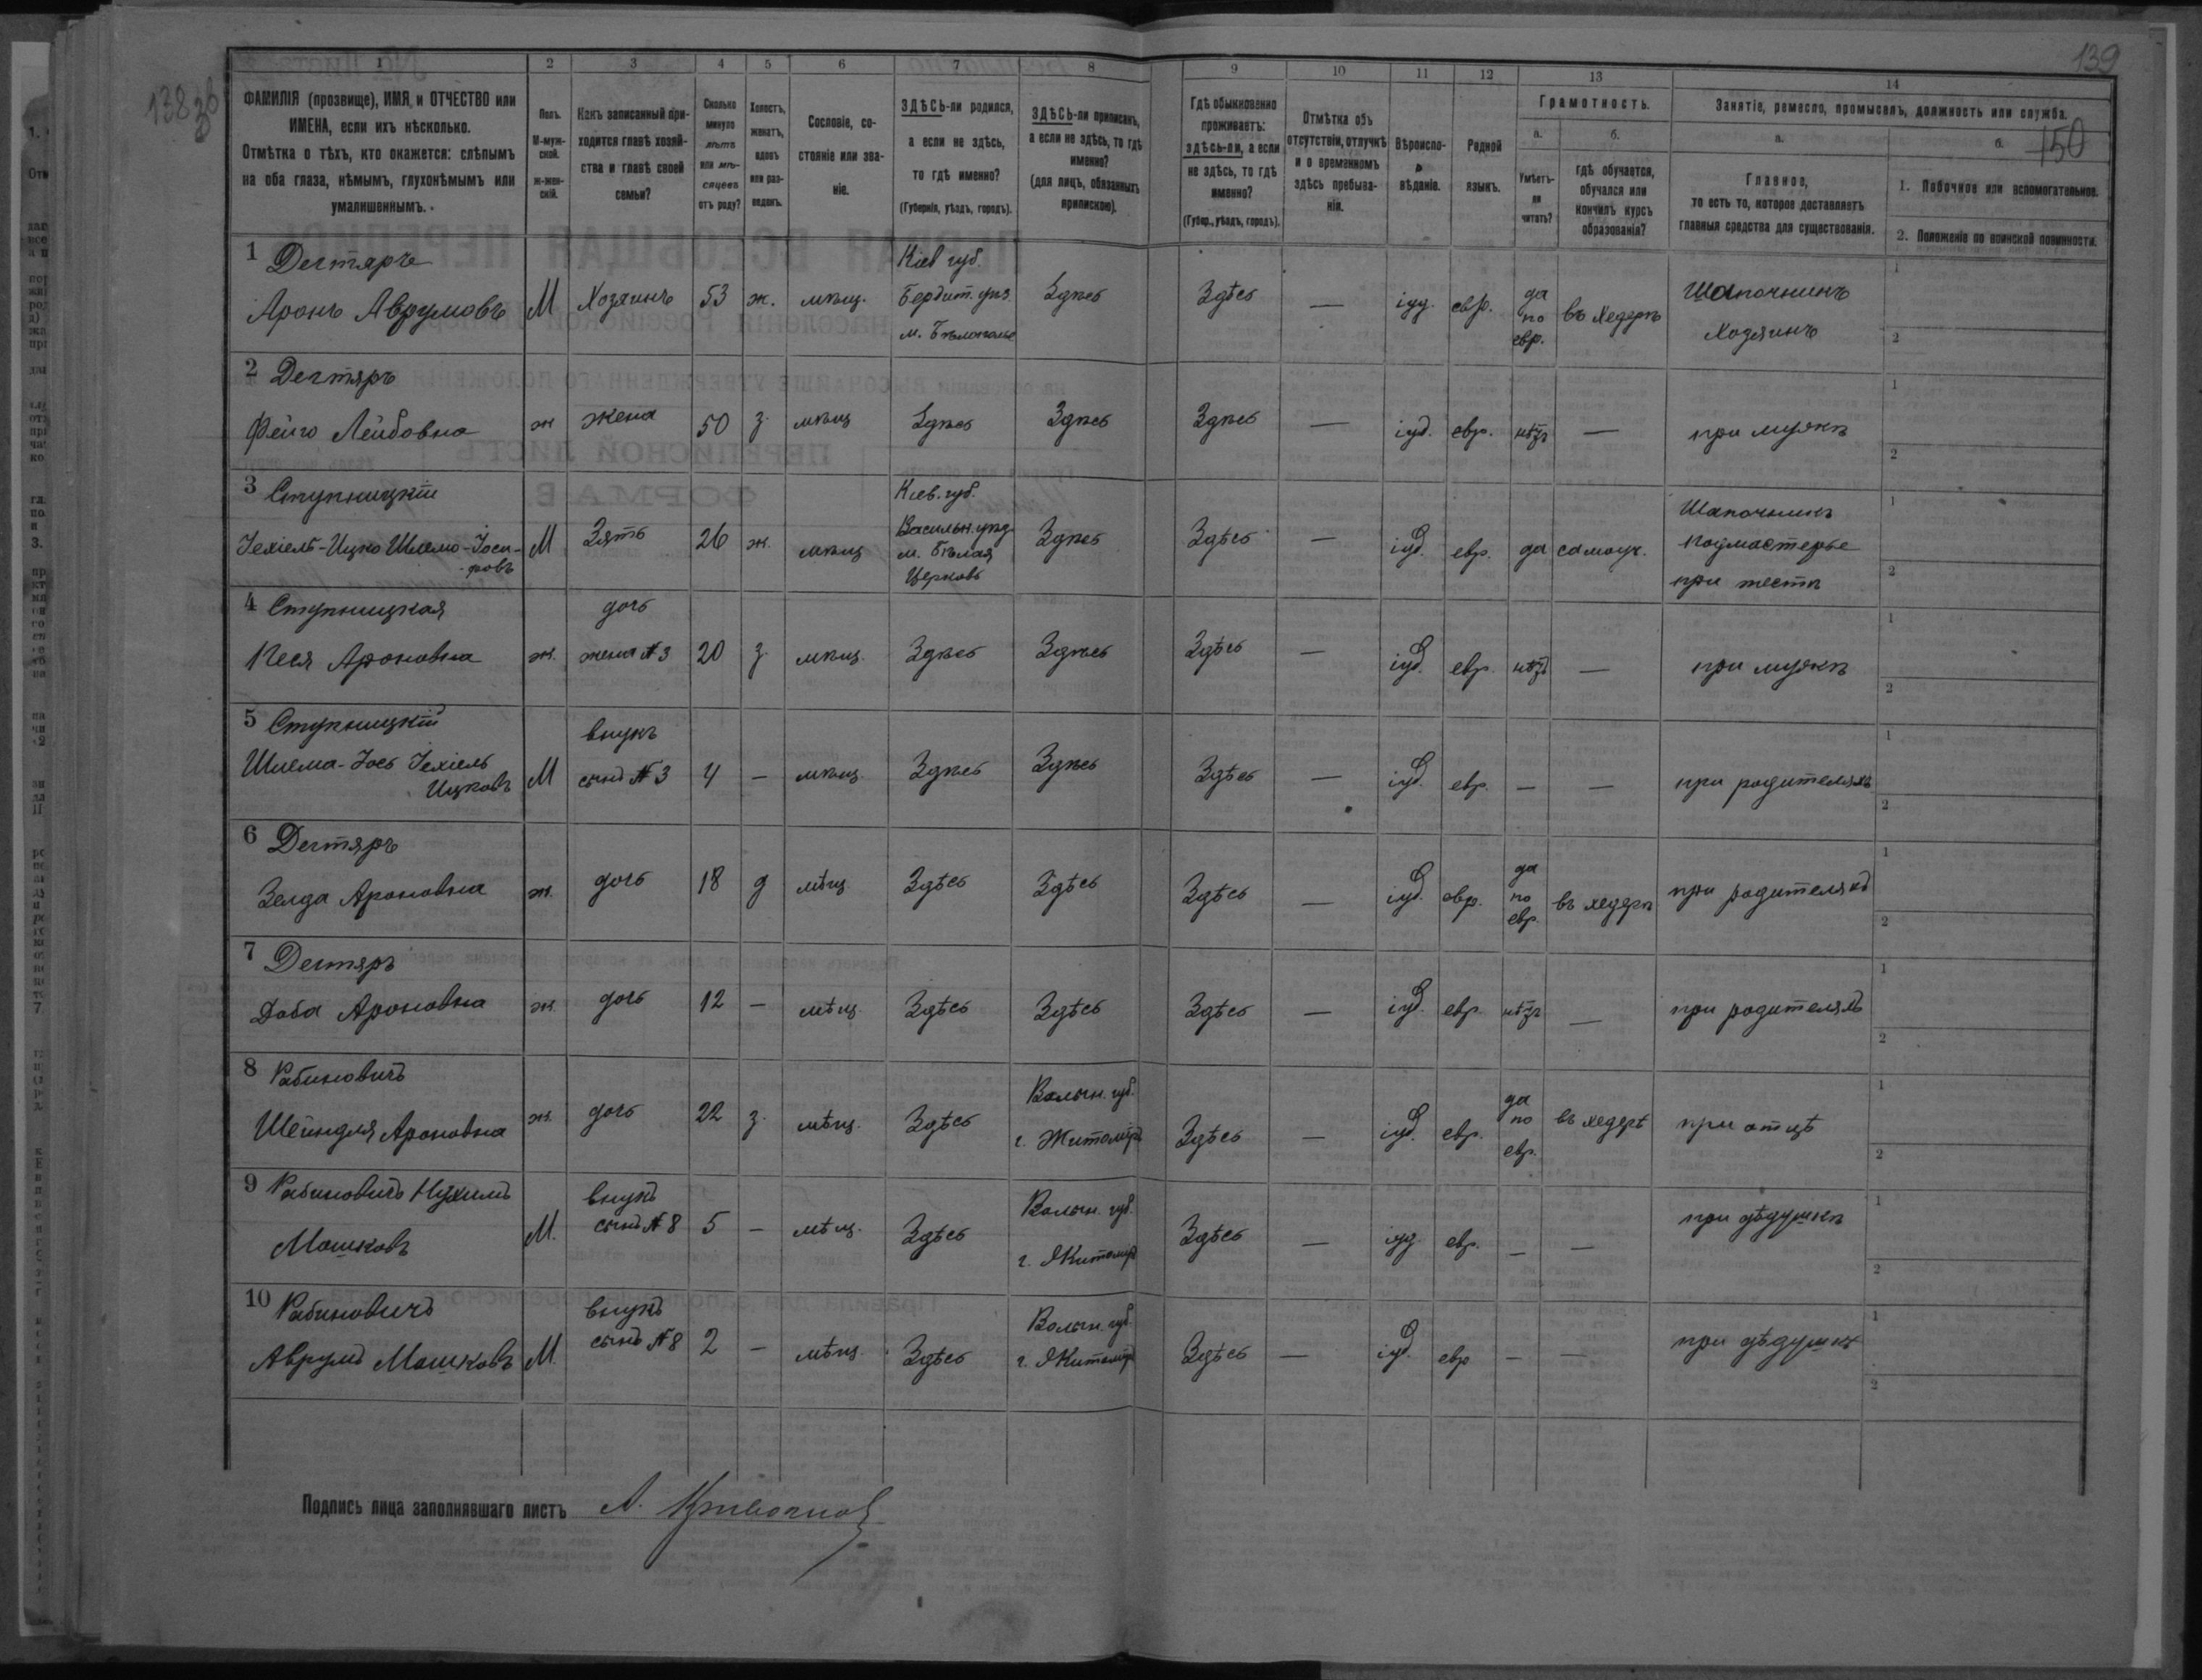 138 об
139
150
1 2 3 4 5 6 7 8 9 10 11 12 13 14
ФАМИЛІЯ (прозвище), ИМЯ, и ОТЧЕСТВО или ИМЕНА, если ихъ нѣсколько.
Отмѣтка о тѣхъ, кто окажется: слѣпымъ на оба глаза, нѣмымъ, глухонѣмымъ или умалишеннымъ.
Полъ. М-мужской. Ж-женскій.
Какъ записанный приходится главѣ хозяйства и главѣ своей семьи?
Сколько минуло лѣтъ или мѣсяцевъ отъ роду?
Холостъ, женатъ, вдовъ или разведенъ.
Сословіе, состояніе или званіе.
ЗДѢСЬ-ли родился, а если не здѣсь, то гдѣ именно? (Губернія, уѣздъ, городъ).
ЗДѢСЬ-ли приписанъ, а если не здѣсь, то гдѣ именно? (для лицъ, обязанныхъ припискою).
Гдѣ обыкновенно проживаетъ: здѣсь-ли, а если не здѣсь, то гдѣ именно? (Губер., уѣздъ, городъ).
Отмѣтка объ отсутствіи, отлучкѣ и о временномъ здѣсь пребываніи.
Вѣроисповѣданіе.
Родной языкъ.
Грамотность.
а. Умѣетъ-ли читать?
б. гдѣ обучается, обучался или кончилъ курсъ образованія?
Занятіе, ремесло, промыселъ, должность или служба.
а. Главное, то есть то, которое доставляетъ главныя средства для существованія.
б. 1. Побочное или вспомогательное.
2. Положеніе по воинской повинности.
1 Дегтярь Аронъ Аврумовъ М Хозяинъ 53 ж. мѣщ. Кіев губ. Бердич. уѣз. м. Бѣлополье Здѣсь Здѣсь — іуд. евр. да по евр. въ хедерѣ Шапочникъ Хозяинъ 1 2
2 Дегтярь Фейго Лейбовна ж жена 50 з. мѣщ Здѣсь Здѣсь Здѣсь — іуд. евр. нѣтъ — при мужѣ 1 2
3 Ступницкій Іехіель-Ицко Шлемо-Іосифовъ М Зять 26 ж. мѣщ Кіев. губ. Васильк. уѣзд м. Бѣлая Церковь Здѣсь Здѣсь — іуд. евр. да самоуч. Шапочникъ подмастерье при тестѣ 1 2
4 Ступницкая Песя Ароновна ж. дочь жена №3 20 з. мѣщ. Здѣсь Здѣсь Здѣсь — іуд. евр. нѣтъ — при мужѣ 1 2
5 Ступницкій Шлема-Іось Іехіель Ицковъ М внукъ сынъ №3 4 — мѣщ. Здѣсь Здѣсь Здѣсь — іуд. евр. — — при родителяхъ 1 2
6 Дегтярь Зелда Ароновна ж. дочь 18 д мѣщ Здѣсь Здѣсь Здѣсь — іуд. евр. да по евр. въ хедерѣ при родителяхъ 1 2
7 Дегтярь Доба Ароновна ж. дочь 12 — мѣщ. Здѣсь Здѣсь Здѣсь — іуд. евр. нѣтъ — при родителяхъ 1 2
8 Рабиновичъ Шейндля Ароновна ж. дочь 22 з. мѣщ. Здѣсь Волын. губ. г. Житоміръ Здѣсь — іуд. евр. да по евр. въ хедерѣ при отцѣ 1 2
9 Рабиновичъ Нухимъ Мошковъ М. внукъ сынъ №8 5 — мѣщ. Здѣсь Волын. губ. г. Житоміръ Здѣсь — іуд. евр. — — при дѣдушкѣ 1 2
10 Рабиновичъ Аврумъ Мошковъ М. внукъ сынъ №8 2 — мѣщ. Здѣсь Волын. губ. г. Житоміръ Здѣсь — іуд. евр — — при дѣдушкѣ 1 2
Подпись лица заполнявшаго листъ А.